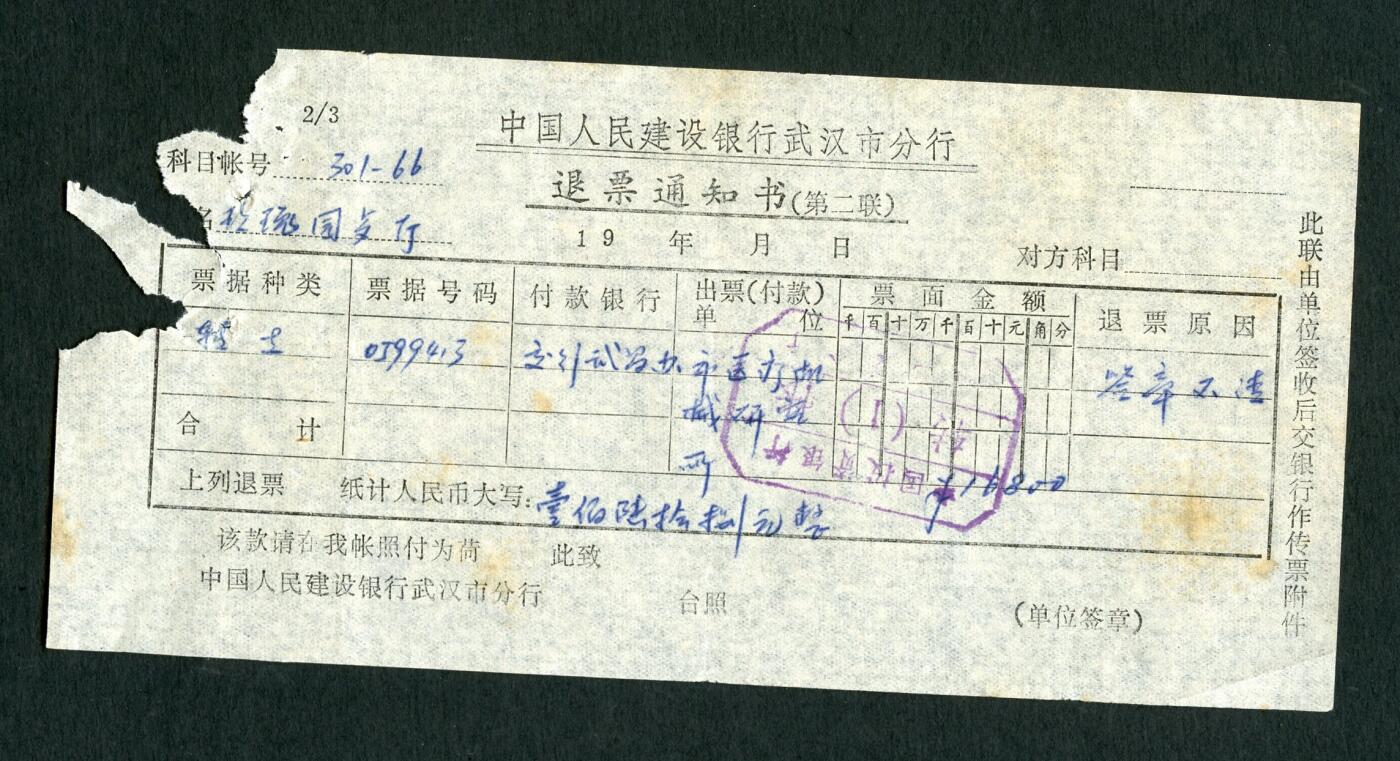 2/3
中国人民建设银行武汉市分行
科目帐号 301-66
退票通知书(第二联)
名
19 年 月 日
对方科目
票据种类 票据号码 付款银行 出票(付款)单位 票面金额 退票原因
千百十万千百十元角分
转 0599413 交行武汉办 市医疗机械研究所 签章不清
合计 ¥16800
上列退票 纸计人民币大写:壹佰陆拾捌元整
该款请在我帐照付为荷 此致
中国人民建设银行武汉市分行 台照
(单位签章)
此联由单位签收后交银行作传票附件